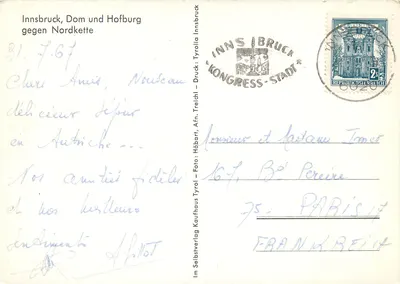 Innsbruck, Dom und Hofburg
gegen Nordkette
31.7.67
Chers Amis, Nouveau
délicieux séjour
en Autriche...
Nos amitiés fidèles
et nos meilleurs
sentiments
Im Selbstverlag Kaufhaus Tyrol - Foto: Höbart, Atn. Treichl - Druck: Tyrolia Innsbruck
INNSBRUCK
KONGRESS-STADT
Monsieur et Madame
167, Bd Pereire
75. PARIS 17
FRANKREICH